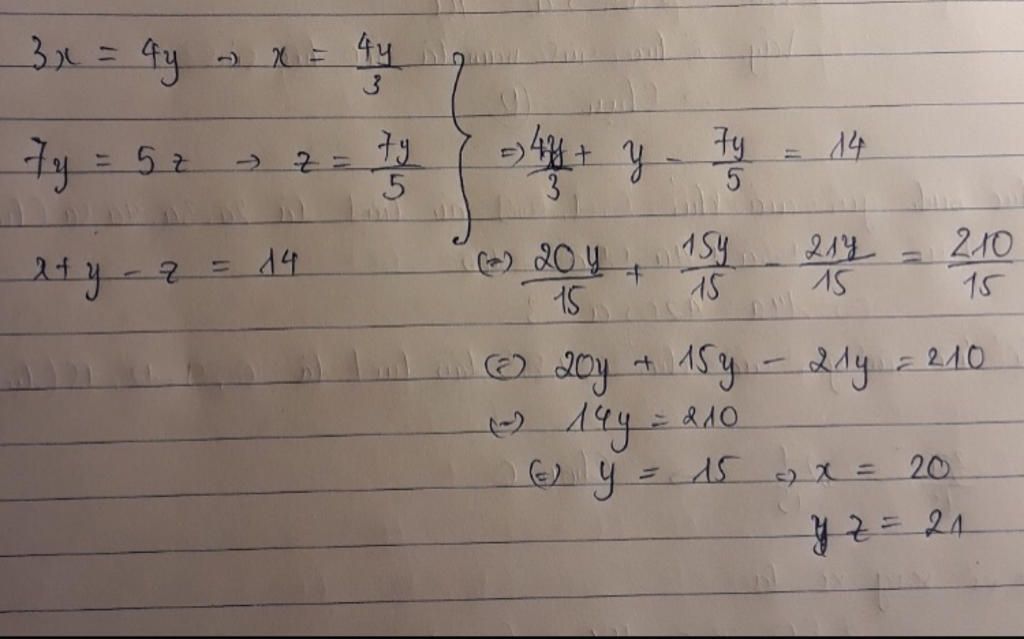 3x = 4y → x = 4y/3
7y = 5z → z = 7y/5 } => 4y/3 + y - 7y/5 = 14
x + y - z = 14 (=) 20y/15 + 15y/15 - 21y/15 = 210/15
(=) 20y + 15y - 21y = 210
(=) 14y = 210
(=) y = 15 => x = 20
z = 21